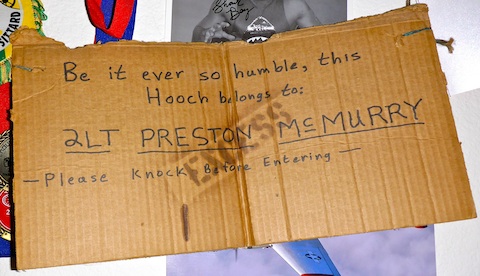 SITTARD
Shark Boy
Be it ever so humble, this
Hooch belongs to:
2LT PRESTON McMURRY
EXCESS
—Please Knock Before Entering—